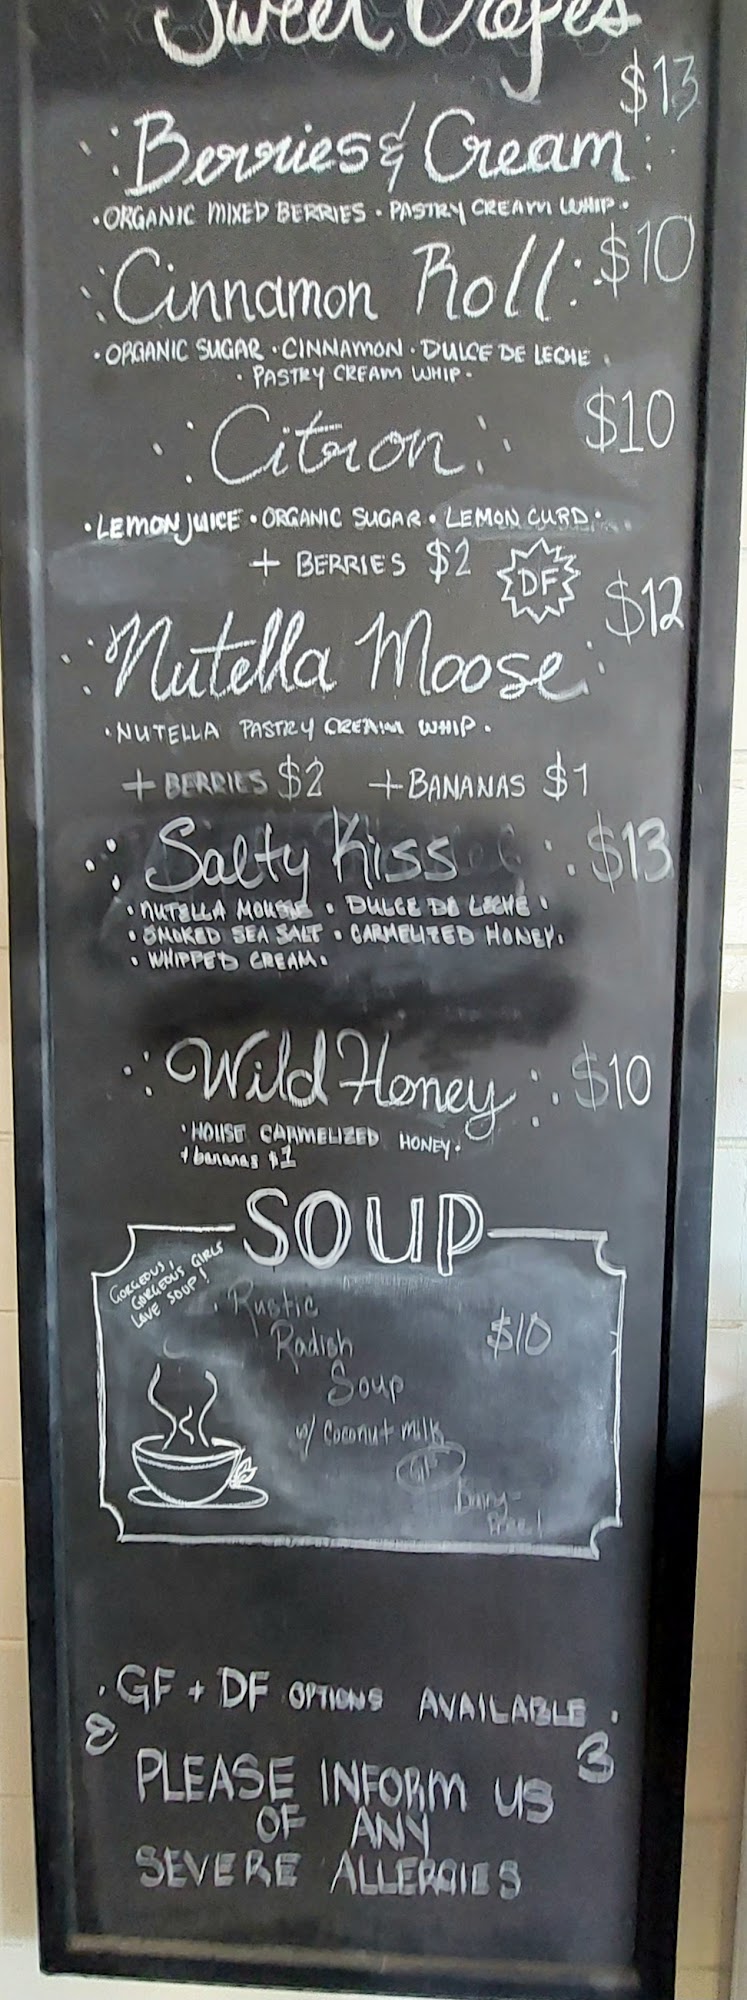 Sweet Crepes
$13
Berries & Cream
• ORGANIC MIXED BERRIES • PASTRY CREAM WHIP •
Cinnamon Roll $10
• ORGANIC SUGAR • CINNAMON • DULCE DE LECHE •
• PASTRY CREAM WHIP •
Citron $10
• LEMON JUICE • ORGANIC SUGAR • LEMON CURD •
+ BERRIES $2 DF
$12
Nutella Moose
• NUTELLA PASTRY CREAM WHIP •
+ BERRIES $2 + BANANAS $1
Salty Kiss $13
• NUTELLA MOUSSE • DULCE DE LECHE •
• SMOKED SEA SALT • CARMELIZED HONEY •
• WHIPPED CREAM •
Wild Honey $10
• HOUSE CARMELIZED HONEY •
+ bananas $1
SOUP
GORGEOUS,
GORGEOUS GIRLS
LOVE SOUP!
Rustic
Radish $10
Soup
w/ Coconut milk
GF
Dairy-
Free!
• GF + DF OPTIONS AVAILABLE •
PLEASE INFORM US
OF ANY
SEVERE ALLERGIES